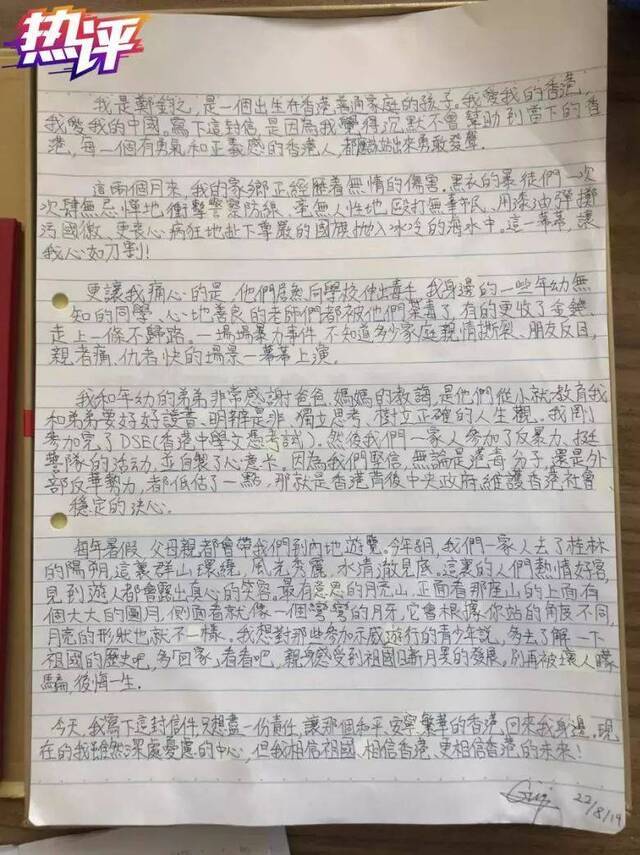 热评
我是鄭鈞之,是一個出生在香港普通家庭的孩子。我愛我的香港,
我愛我的中國。寫下這封信,是因為我覺得沉默不會幫助到當下的香
港,每一個有勇氣和正義感的香港人,都應站出來勇敢發聲。
這兩個月來,我的家鄉正經歷着無情的傷害。黑衣的暴徒們一次
次肆無忌憚地衝擊警察防線、毫無人性地毆打無辜市民、用漆油彈擲
污國徽、更喪心病狂地扯下尊嚴的國旗拋入冰冷的海水中。這一幕幕,讓
我心如刀割!
更讓我痛心的是,他們居然向學校伸出毒手,我身邊的一些年幼無
知的同學、心地善良的老師們都被他們荼毒了,有的更收了金錢、
走上一條不歸路。一場場暴力事件,不知道多少家庭親情撕裂、朋友反目,
親者痛、仇者快的場景一幕幕上演。
我和年幼的弟弟非常感謝爸爸、媽媽的教誨,是他們從小就教育我
和弟弟要好好讀書、明辨是非、獨立思考、樹立正確的人生觀。我剛
參加完了DSE(香港中學文憑考試)。然後我們一家人參加了反暴力、挺
警隊的活動,並自製了心意卡。因為我們堅信,無論是港毒分子,還是外
部反華勢力,都低估了一點,那就是香港背後中央政府,維護香港社會、
穩定的決心。
每年暑假,父母親都會帶我們到內地遊覽。今年8月,我們一家人去了桂林
的陽朔,這裏群山環繞,風光秀麗,水清澈見底。這裏的人們熱情好客,
見到遊人都會露出真心的笑容。最有意思的月亮山,正面看那座山的上面有
個大大的圓月,側面看就像一個彎彎的月牙,它會根據你站的角度不同,
月亮的形狀也就不一樣。我想對那些參加示威遊行的青少年說,多去了解一下
祖國的歷史吧,多「回家」看看吧,親身感受到祖國日新月異的發展。別再被壞人矇
騙,後悔一生。
今天,我寫下這封信件,只想盡一份責任,讓那個和平、安寧、繁華的香港,回來我身邊。現
在的我雖然深處憂慮的中心,但我相信祖國、相信香港、更相信香港的未來!
22/8/19